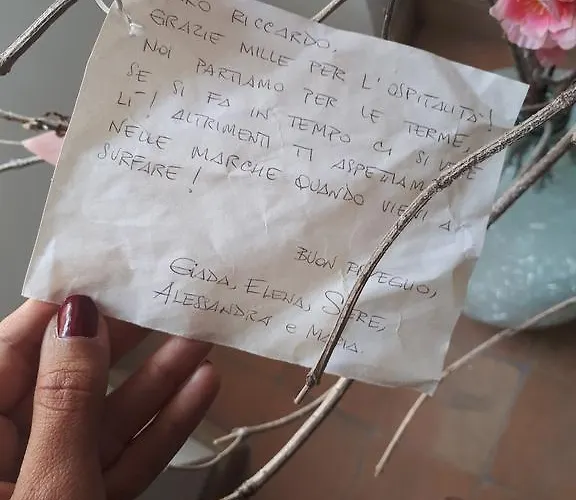 RICCARDO,
GRAZIE MILLE PER L'OSPITALITÀ!
NOI PARTIAMO PER LE TERME,
SE SI FA IN TEMPO CI SI VEDE
LÌ! ALTRIMENTI TI ASPETTIAMO
NELLE MARCHE QUANDO VIENI A
SURFARE!
BUON
GIADA, ELENA, SERE,
ALESSANDRA e MARIA.